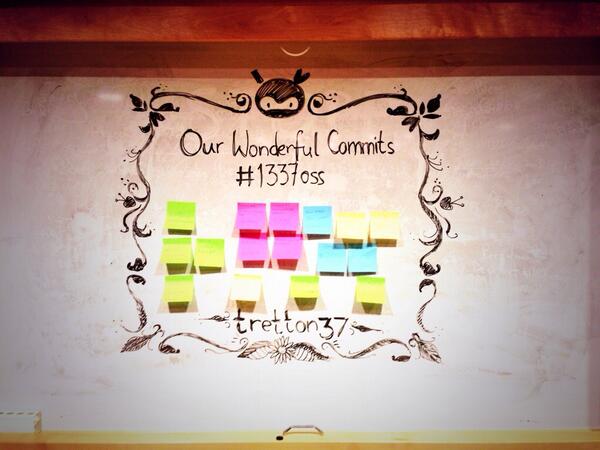 Our Wonderful Commits
#1337oss
tretton37